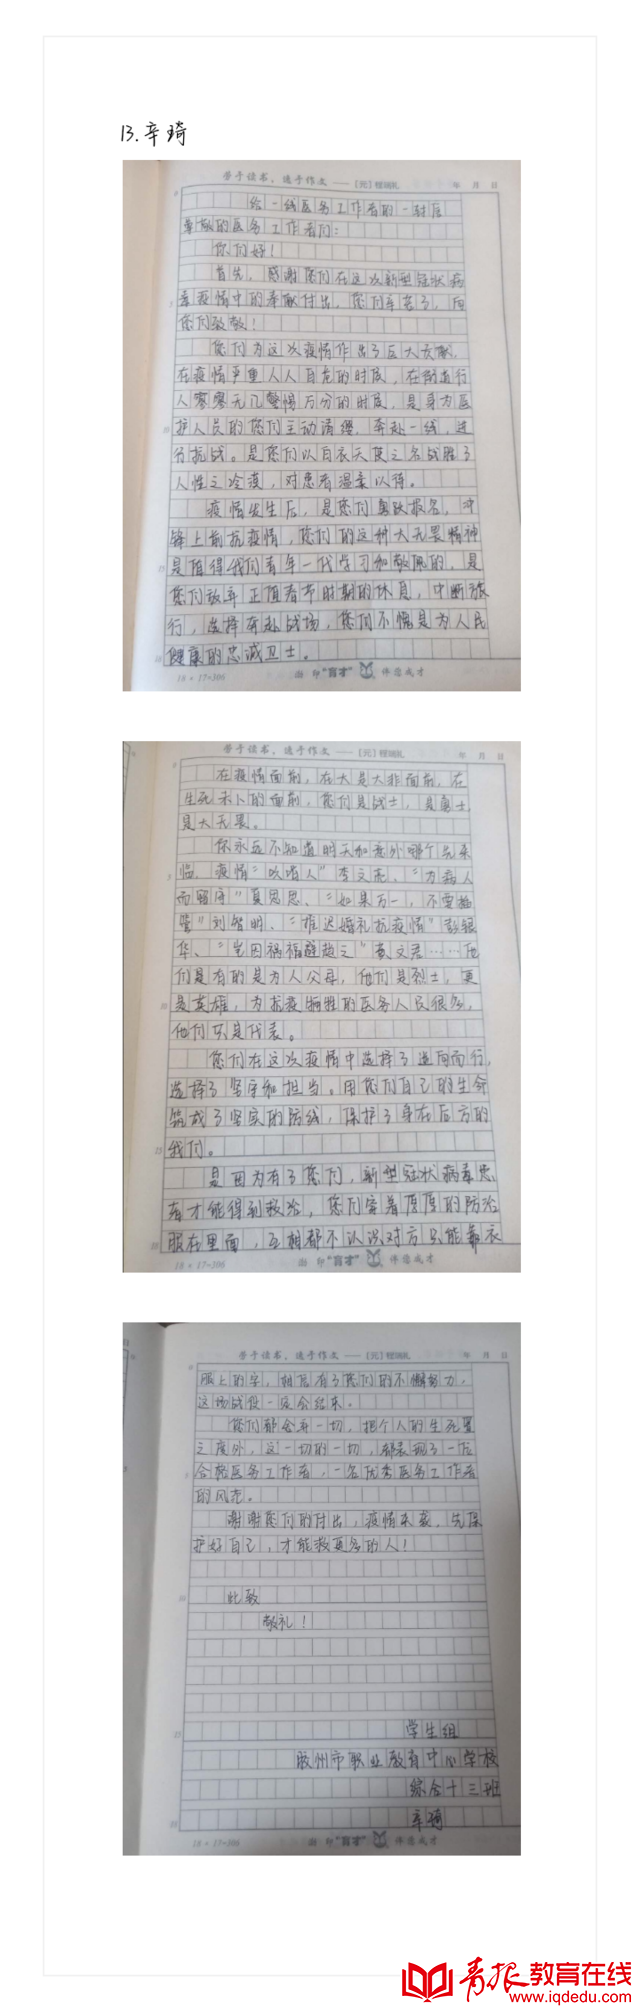 13.辛琦
劳于读书,逸于作文——[元]程端礼 年 月 日
给一线医务工作者的一封信
奉献的医务工作者们:
你们好!
首先,感谢您们在这次新型冠状病
毒疫情中的奉献付出,您们辛苦了,向
您们致敬!
您们为这次疫情作出了巨大贡献,
在疫情严重人人自危的时候,在街道行
人寥寥无几警惕万分的时候,是身为医
护人员的您们主动请缨,奔赴一线,进
行抗战。是您们以白衣天使之名战胜了
人性之冷漠,对患者温柔以待。
疫情发生后,是您们勇跃报名,冲
锋上前抗疫情,您们的这种大无畏精神
是值得我们青年一代学习和敬佩的,是
您们放弃正值春节时期的休息,中断旅
行,选择奔赴战场,您们不愧是为人民
健康的忠诚卫士。
18×17=306 浙 印"育才" 伴您成才
劳于读书,逸于作文——[元]程端礼 年 月 日
在疫情面前,在大是大非面前,在
生死未卜的面前,您们是战士,是勇士,
是大无畏。
你永远不知道明天和意外哪个先来
临,疫情"吹哨人"李文亮、"为病人
而留守"夏思思、"如果万一,不要插
管"刘智明、"推迟婚礼抗疫情"彭银
华、"岂因祸福避趋之"黄文军……他
们是有的是为人父母,他们是烈士,更
是英雄,为抗疫牺牲的医务人员很多,
他们只是代表。
您们在这次疫情中选择了逆向而行,
选择了坚守和担当。用您们自己的生命
筑成了坚实的防线,保护了身在后方的
我们。
是因为有了您们,新型冠状病毒患
者才能得到救治,您们穿着厚厚的防治
服在里面,互相都不认识对方只能靠衣
18×17=306 浙 印"育才" 伴您成才
劳于读书,逸于作文——[元]程端礼 年 月 日
服上的字,相信有了您们的不懈努力,
这场战役一定会结束。
您们都舍弃一切,把个人的生死置
之度外,这一切的一切,都表现了一位
合格医务工作者,一名优秀医务工作者
的风范。
谢谢您们的付出,疫情来袭,先保
护好自己,才能救更多的人!
此致
敬礼!
学生组
胶州市职业教育中心学校
综合十三班
辛琦
18×17=306 浙 印"育才" 伴您成才
青报教育在线
www.iqdedu.com